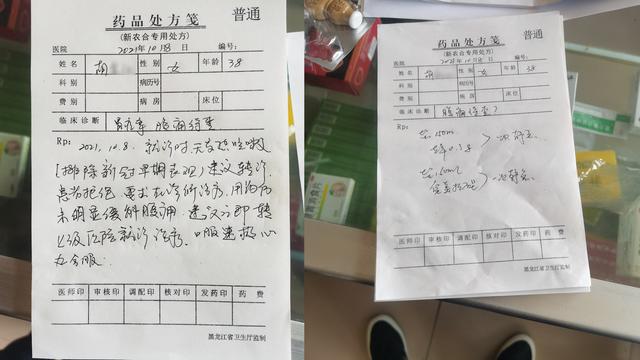 药品处方笺
普通
(新农合专用处方)
医院
2021年10月8日
编号:
姓名
胡
性别
女
年龄
38
科别
病历号
费别
病房
床位
临床诊断
腹痛待查
Rp:
2021.10.8. 就诊时无发热咳嗽
(排除新冠早期表现)建议转诊
患者拒绝 要求在诊所治疗.用药后
未明显缓解腹痛.建议立即转
上级医院就诊治疗.口服速效心
医师印
审核印
调配印
核对印
发药印
药费
黑龙江省卫生厅监制
药品处方笺
普通
(新农合专用处方)
医院
2021年10月8日
编号:
姓名
胡
性别
女
年龄
38
科别
病历号
费别
病房
床位
临床诊断
腹痛待查?
Rp:
医师印
审核印
调配印
核对印
发药印
药费
黑龙江省卫生厅监制